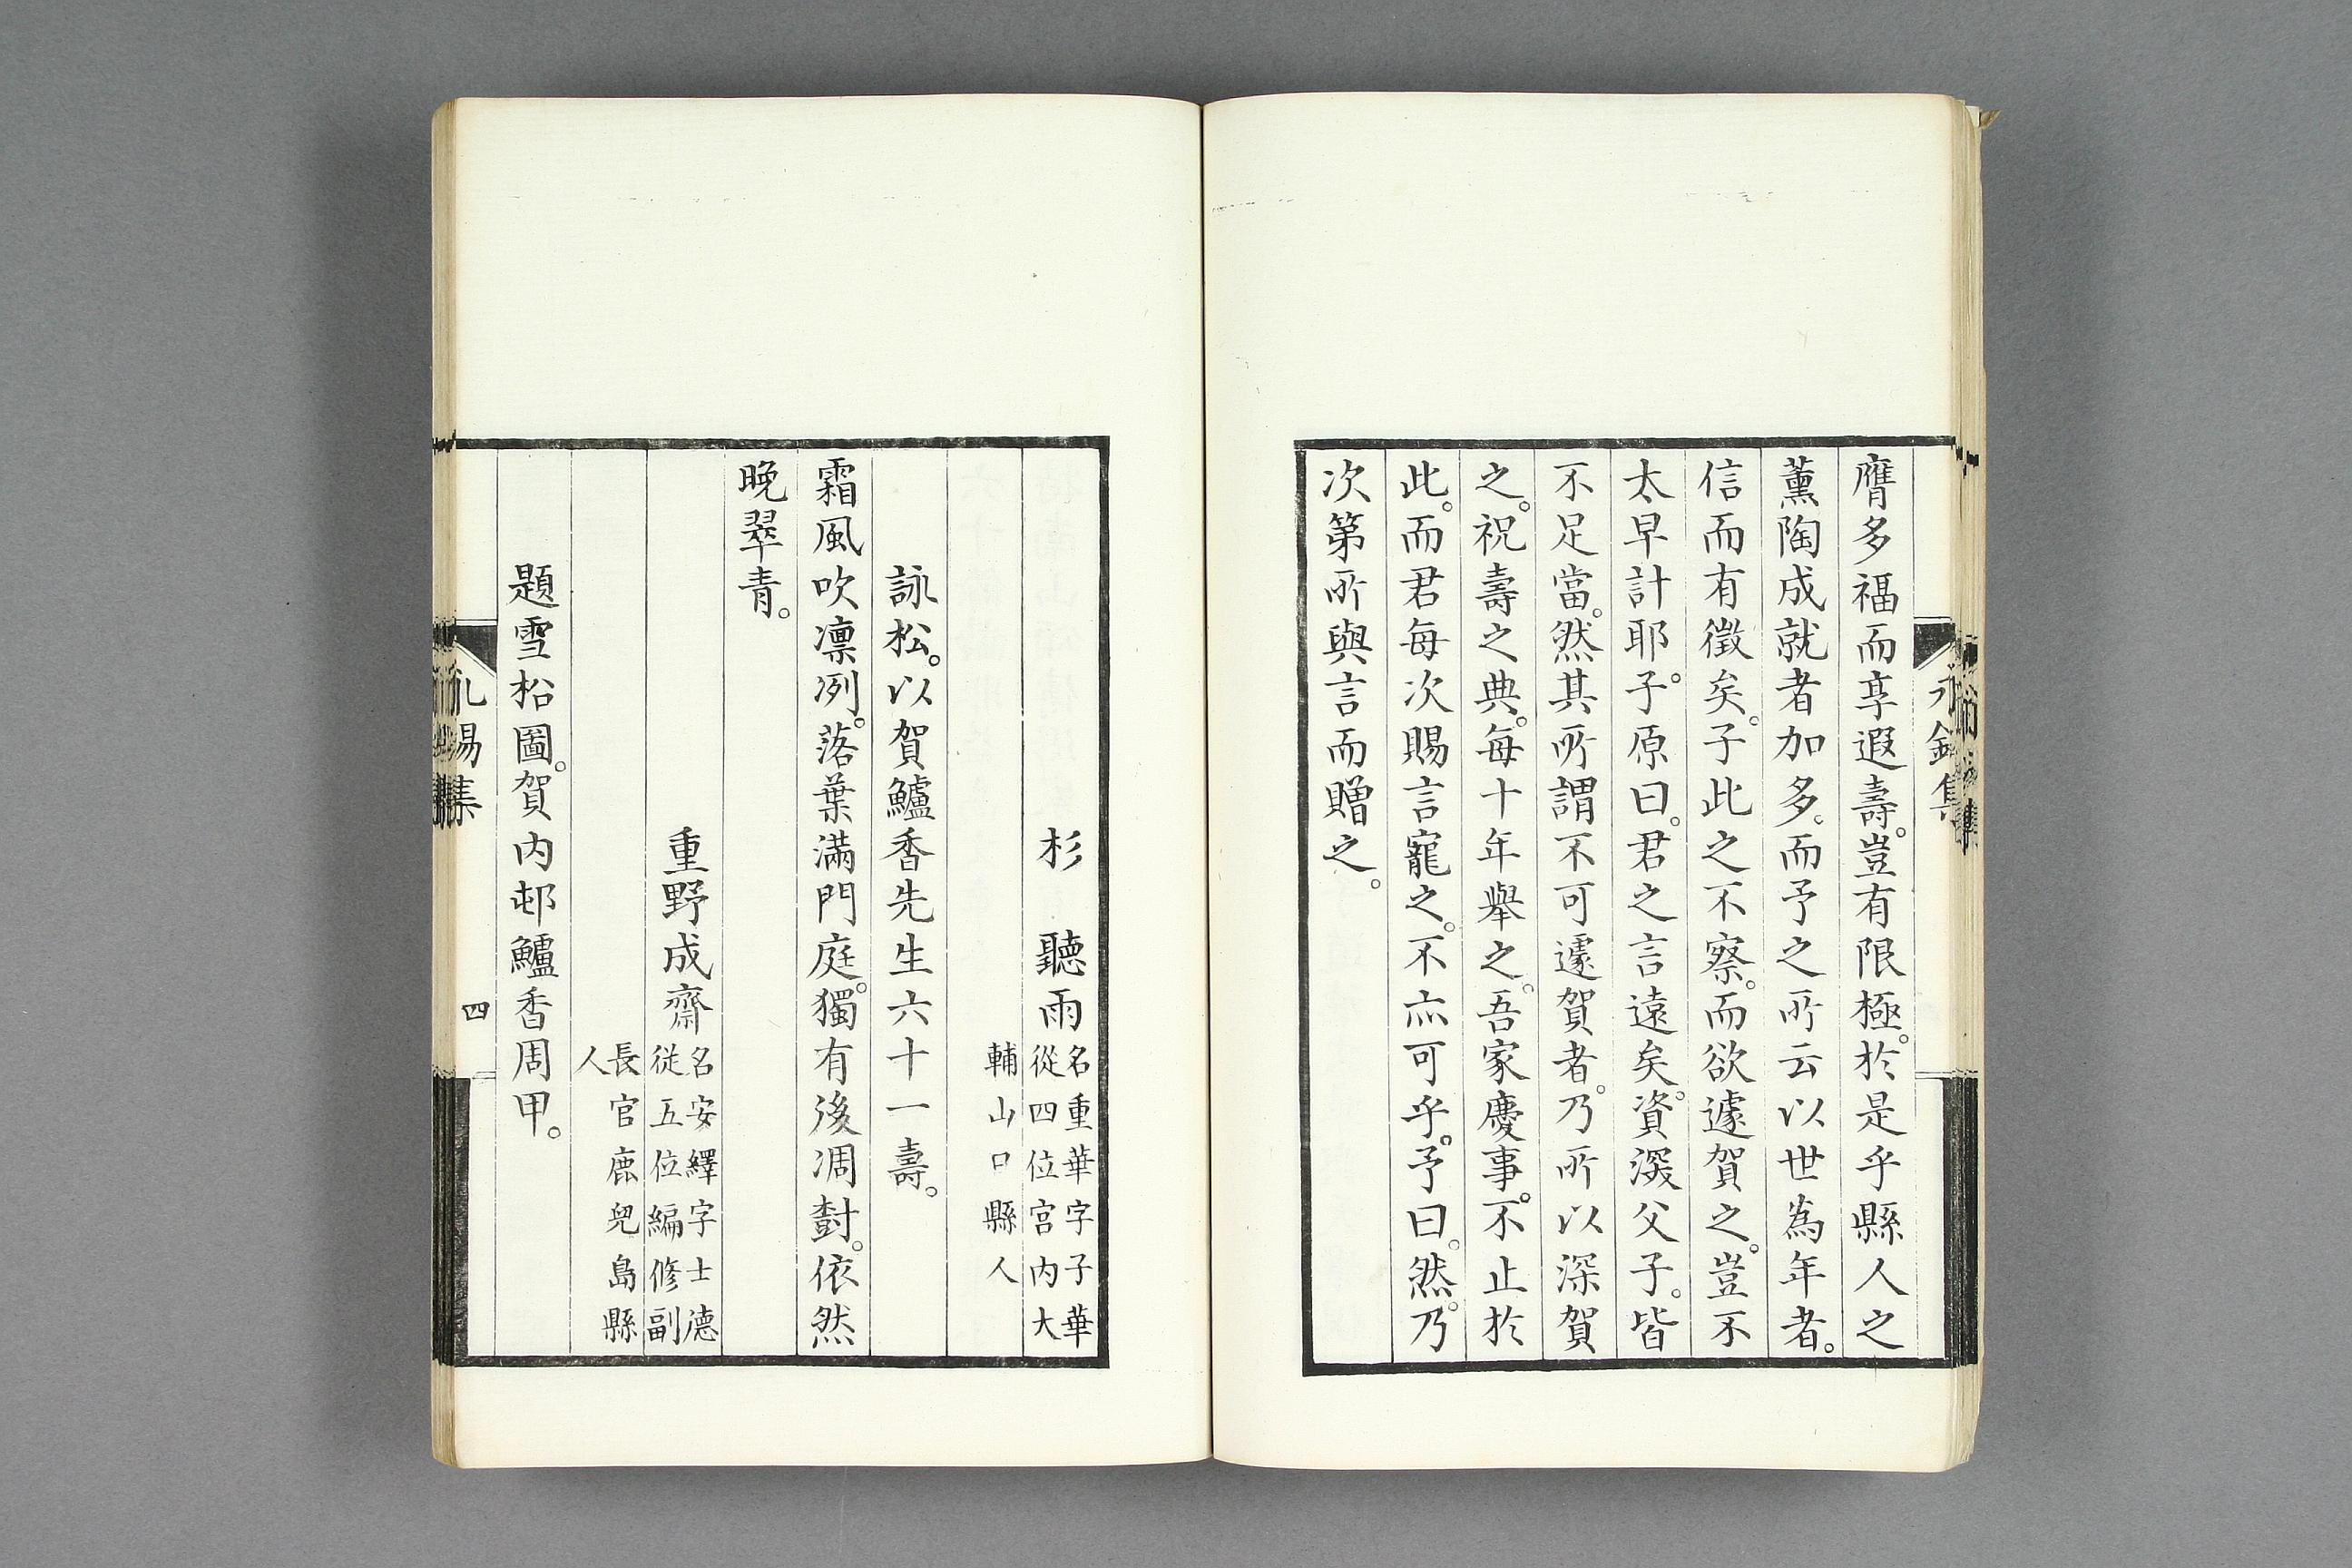 膺多福而享遐壽。豈有限極。於是乎縣人之
薫陶成就者加多。而予之所云以世為年者。
信而有徵矣。子此之不察。而欲遽賀之。豈不
太早計耶。子原曰。君之言遠矣。資深父子。皆
不足當。然其所謂不可遽賀者。乃所以深賀
之。祝壽之典。每十年舉之。吾家慶事。不止於
此。而君每次賜言寵之。不亦可乎。予曰。然。乃
次第所與言而贈之。
杉聽雨名重華字子華
從四位宮内大
輔山口縣人
詠松。以賀鱸香先生六十一壽。
霜風吹凛冽。落葉滿門庭。獨有後凋對。依然
晚翠青。
重野成齋名安繹字士德
從五位編修副
長官鹿兒島縣
人
題雪松圖。賀内邨鱸香周甲。
四